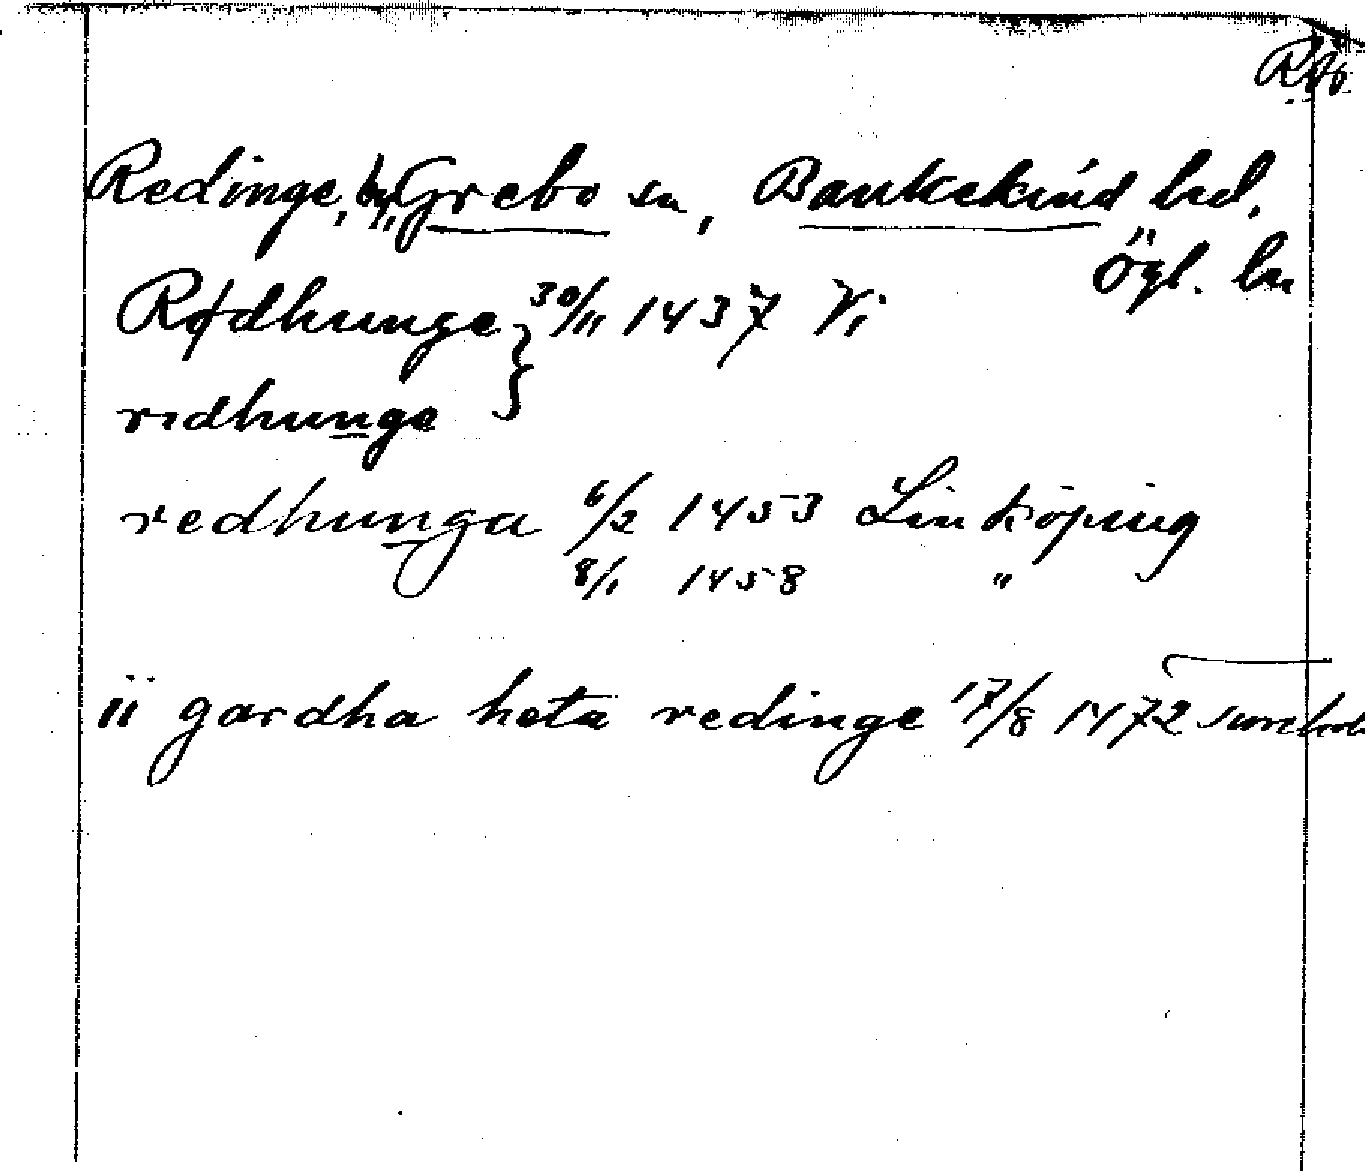 RÄö
Redinge, by, Grebo sn, Bankekind hd,
Ögl. ln
Rødhunge } 30/11 1437 Vi
rødhunge
redhunga 6/2 1453 Linköping
8/1 1458 "
ii gardha heta redinge 17/8 1472